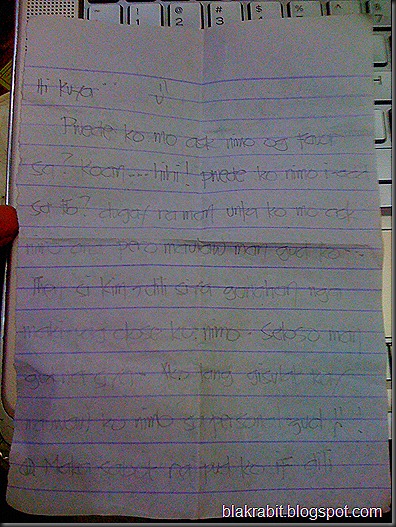 Hi Kuya ü
Pwede ko mo ask nimo og favor
sa? Koan.... hihi! pwede ko nimo i-add
sa fb? dugay ra man unta ko mo ask
nimo ana pero maulaw man gud ko.
Then si Kim dili siya ganahan nga
maki-ug close ko nimo. Seloso man
gud na siya. Ako lang gisulat kay
maulaw ko nimo sa person gud !! !
Maka sabot na pud ko if dili
blakrabit.blogspot.com